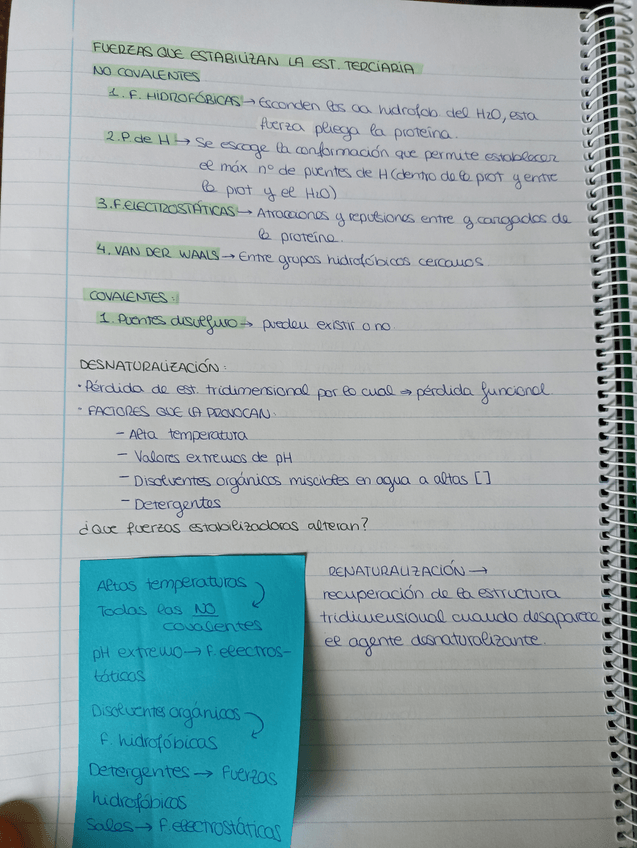 FUERZAS QUE ESTABILIZAN LA EST. TERCIARIA
NO COVALENTES
1. F. HIDROFÓBICAS → Esconden los aa hidrofob del H2O, esta
fuerza pliega la proteína.
2. P. de H → Se escoge la conformación que permite establecer
el máx nº de puentes de H (dentro de la prot y entre
la prot y el H2O)
3. F. ELECTROSTÁTICAS → Atracciones y repulsiones entre g cargados de
la proteína.
4. VAN DER WAALS → Entre grupos hidrofóbicos cercanos.
COVALENTES:
1. Puentes disulfuro → pueden existir o no
DESNATURALIZACIÓN:
· Pérdida de est. tridimensional por lo cual → pérdida funcional
· FACTORES QUE LA PROVOCAN:
- Alta temperatura
- Valores extremos de pH
- Disolventes orgánicos miscibles en agua a altas []
- Detergentes
¿Que fuerzas estabilizadoras alteran?
Altas temperaturas
Todas las NO
covalentes
pH extremo → F. electros-
táticas
Disolventes orgánicos
F. hidrofóbicas
Detergentes → Fuerzas
hidrofóbicas
Sales → F electrostáticas
RENATURALIZACIÓN →
recuperación de la estructura
tridimensional cuando desaparece
el agente desnaturalizante.